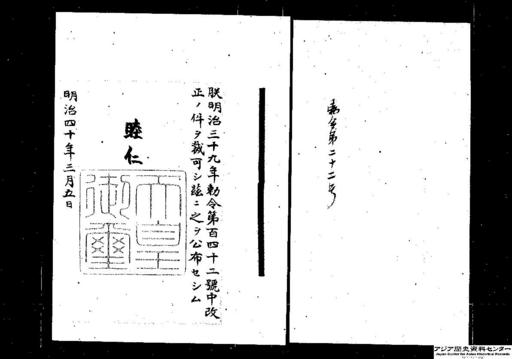 勅令第二十二号
朕明治三十九年勅令第百四十二號中改
正ノ件ヲ裁可シ玆ニ之ヲ公布セシム
睦仁
天皇
御璽
明治四十年三月五日
アジア歴史資料センター
Japan Center for Asian Historical Records